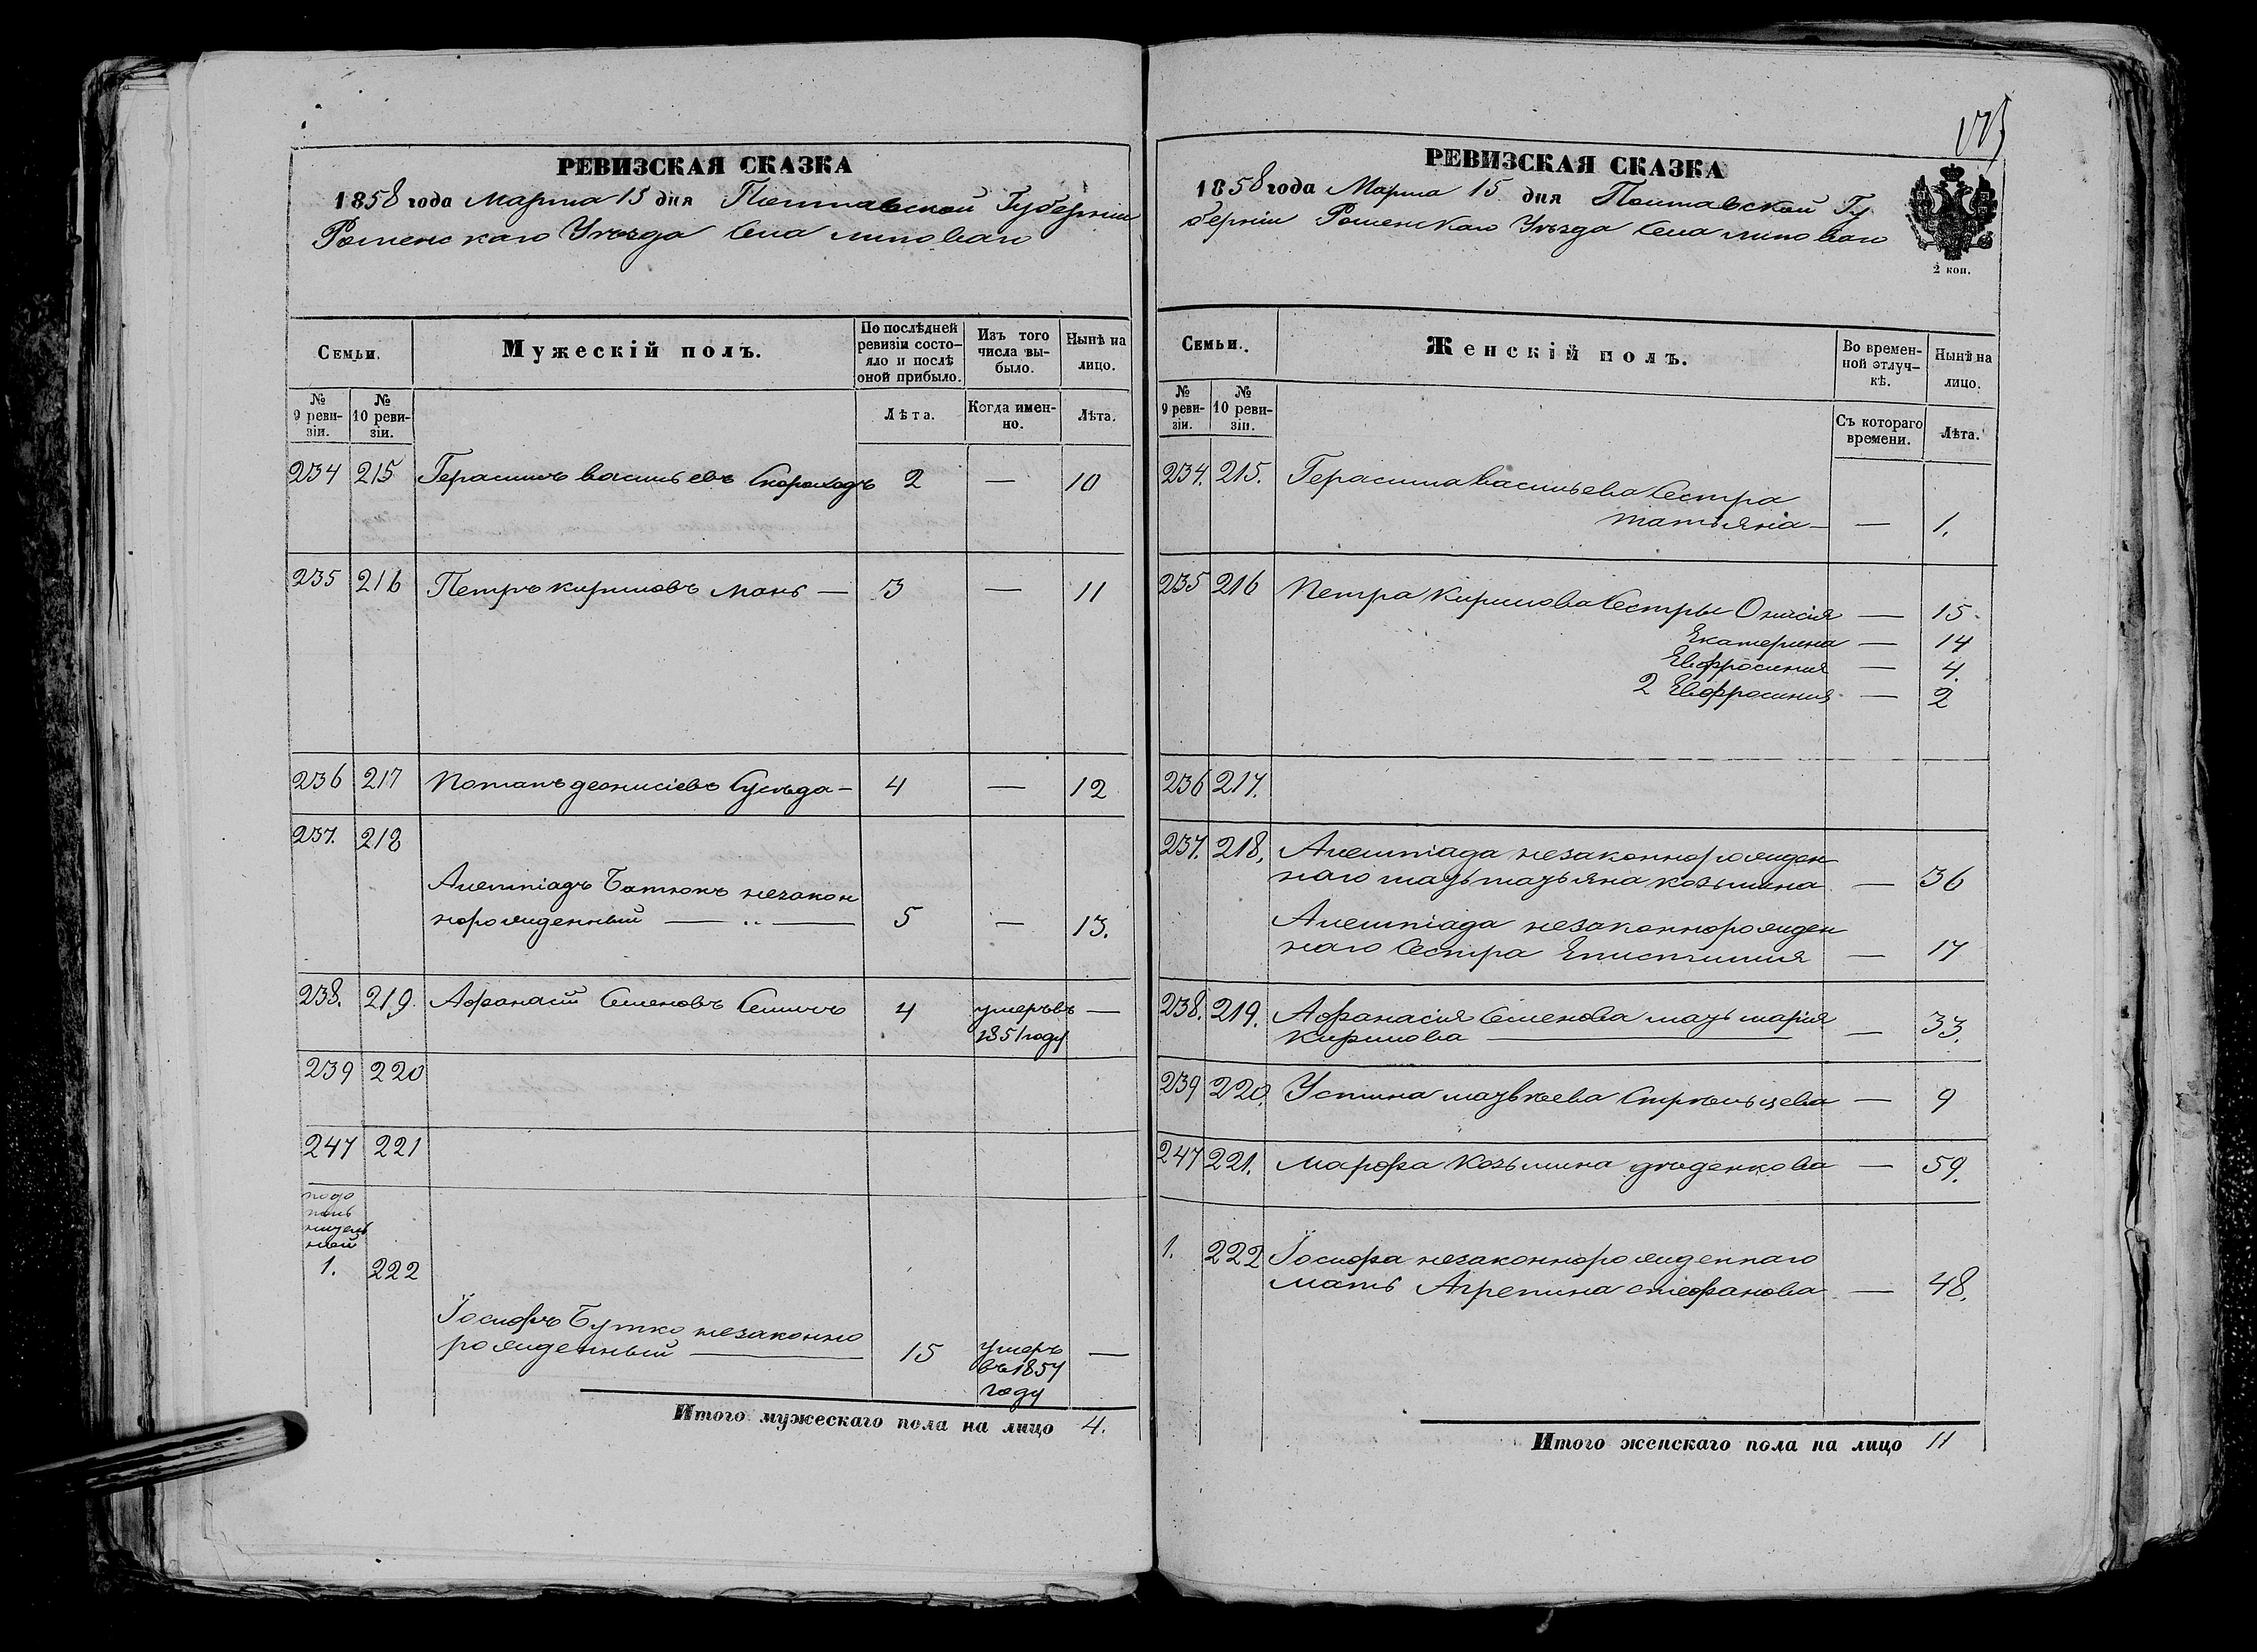 РЕВИЗСКАЯ СКАЗКА
1858 года Марта 15 дня Полтавской Губерніи
Роменскаго Уѣзда Села Липоваго
Семьи.
Мужескій полъ.
По послѣдней ревизіи состояло и послѣ оной прибыло.
Изъ того числа выбыло.
Нынѣ на лицо.
№ 9 ревизіи.
№ 10 ревизіи.
Лѣта.
Когда именно.
Лѣта.
234 215 Герасимъ васильевъ Скороходъ 2 — 10
235 216 Петръ кириловъ Мань — 3 — 11
236 217 Потапъ деонисіевъ Сусѣда — 4 — 12
237. 218
Алемпіадъ Батюкъ незакон
норожденный — 5 — 13.
238. 219. Афанасій Семеновъ 4 умеръ въ —
1851 году
239 220
247 221
1. 222
Іосифъ Бутко незаконно
рожденный — 15 умеръ —
въ 1857
году
Итого мужескаго пола на лицо 4.
РЕВИЗСКАЯ СКАЗКА
1858 года Марта 15 дня Полтавской Гу
берніи Роменскаго Уѣзда Села Липоваго
2 коп.
Семьи.
Женскій полъ.
Во временной отлучкѣ.
Нынѣ на лицо.
№ 9 ревизіи.
№ 10 ревизіи.
Съ котораго времени.
Лѣта.
234. 215. Герасима васильева Сестра
татьяна — — 1.
235 216 Петра Кирилова Сестры — 15
Екатерина — 14
Евфросиния — 4.
2 Евфросиния — 2
236 217.
237. 218. Алемпіада незаконнорожден
наго мать татьяна козьмина — 36
Алемпіада незаконнорожден
наго Сестра Епистимия — 17
238. 219. Афанасия Семенова мать мария
Кирилова — — 33.
239 220. Устина матвѣева Стрѣльцева — 9
247 221. Марфа Козьмина дѣденкова — 59.
1. 222 Іосифа незаконнорожденнаго
мать Агрепина стефанова — 48.
Итого женскаго пола на лицо 11